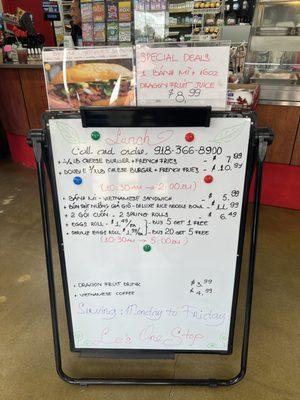 SPECIAL DEALS
1 BÁNH MÌ + 16OZ
DRAGON FRUIT JUICE
$8.99
Lunch
Call and order, 918-366-8900
1/4 LB CHEESE BURGER + FRENCH FRIES - $7.99
DOUBLE 1/4 LB CHEESE BURGER + FRENCH FRIES - $10.99
(10:30AM → 2:00PM)
+ BÁNH MÌ - VIETNAMESE SANDWICH - $5.99
+ BÚN THỊT NƯỚNG GIÀ GIÒ - DELUXE RICE NOODLE BOWL - $11.99
+ 2 GỎI CUỐN - 2 SPRING ROLLS - $6.49
+ EGGS ROLL - $1.49/EA - BUY 5 GET 1 FREE
+ SHRIMP EGGS ROLL $1.99/EA - BUY 20 GET 5 FREE
(10:30AM → 5:00PM)
+ DRAGON FRUIT DRINK $3.99
+ VIETNAMESE COFFEE $4.99
Serving: Monday to Friday
Le's One Stop